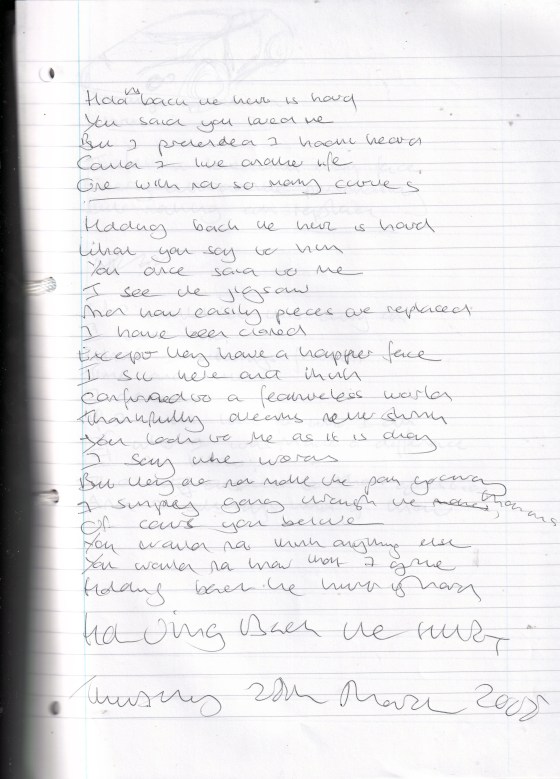 Holding back the hurt is hard
You said you loved me
But I pretended I hadn't heard
Could I live another life
One with not so many curves

Holding back the hurt is hard
What you say to him
You once said to me
I see the jigsaw
And how easily pieces are replaced
I have been cloned
Except they have a happier face
I sit here and think
Confined to a featureless world
Thankfully dreams never shrink
You look to me as it is okay
I say the words
But they do not make the pain go away
I simply going through the motions
Of course you believe
You would not think anything else
You would not know that I grieve
Holding back the hurt is hard
Holding Back the Hurt
28th March 2008